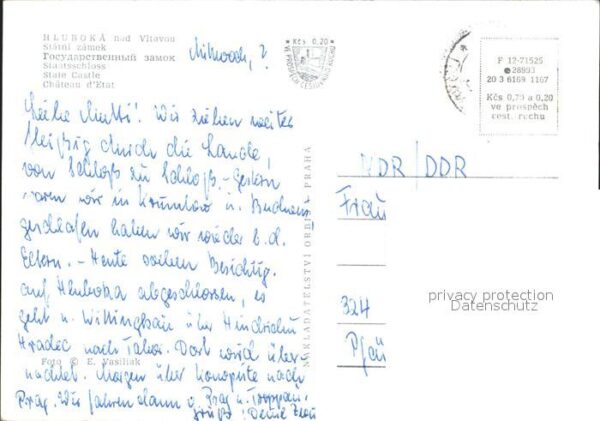 HLUBOKÁ nad Vltavou
Státní zámek
Государственный замок
Staatsschloss
State Castle
Château d'Etat
Mittwoch, ?
Kčs 0,20
VE PROSPĚCH CESTOVNÍHO RUCHU
F 12-71525
28993
20 3 6169 1167
Kčs 0,70 a 0,20
ve prospěch
cest. ruchu
Liebe Mutti! Wir ziehen weiter
fleißig durch die Lande,
von Schloß zu Schloß. - Gestern
waren wir in Krumlov u. Budweis
geschlafen haben wir wieder b. d.
Eltern. - Heute Besichtig.
auf Hluboka abgeschlossen, es
geht n. Wittingau über Jindrichu
Hradec nach Tabor. Dort wird über-
nachtet. Morgen über Konopiste nach
Prag. Wir fahren dann v. Prag n. Troppau.
Grüße Deine
Foto © E. Vasiliak
NAKLADATELSTVÍ ORBIS PRAHA
DDR
Frau
privacy protection
Datenschutz